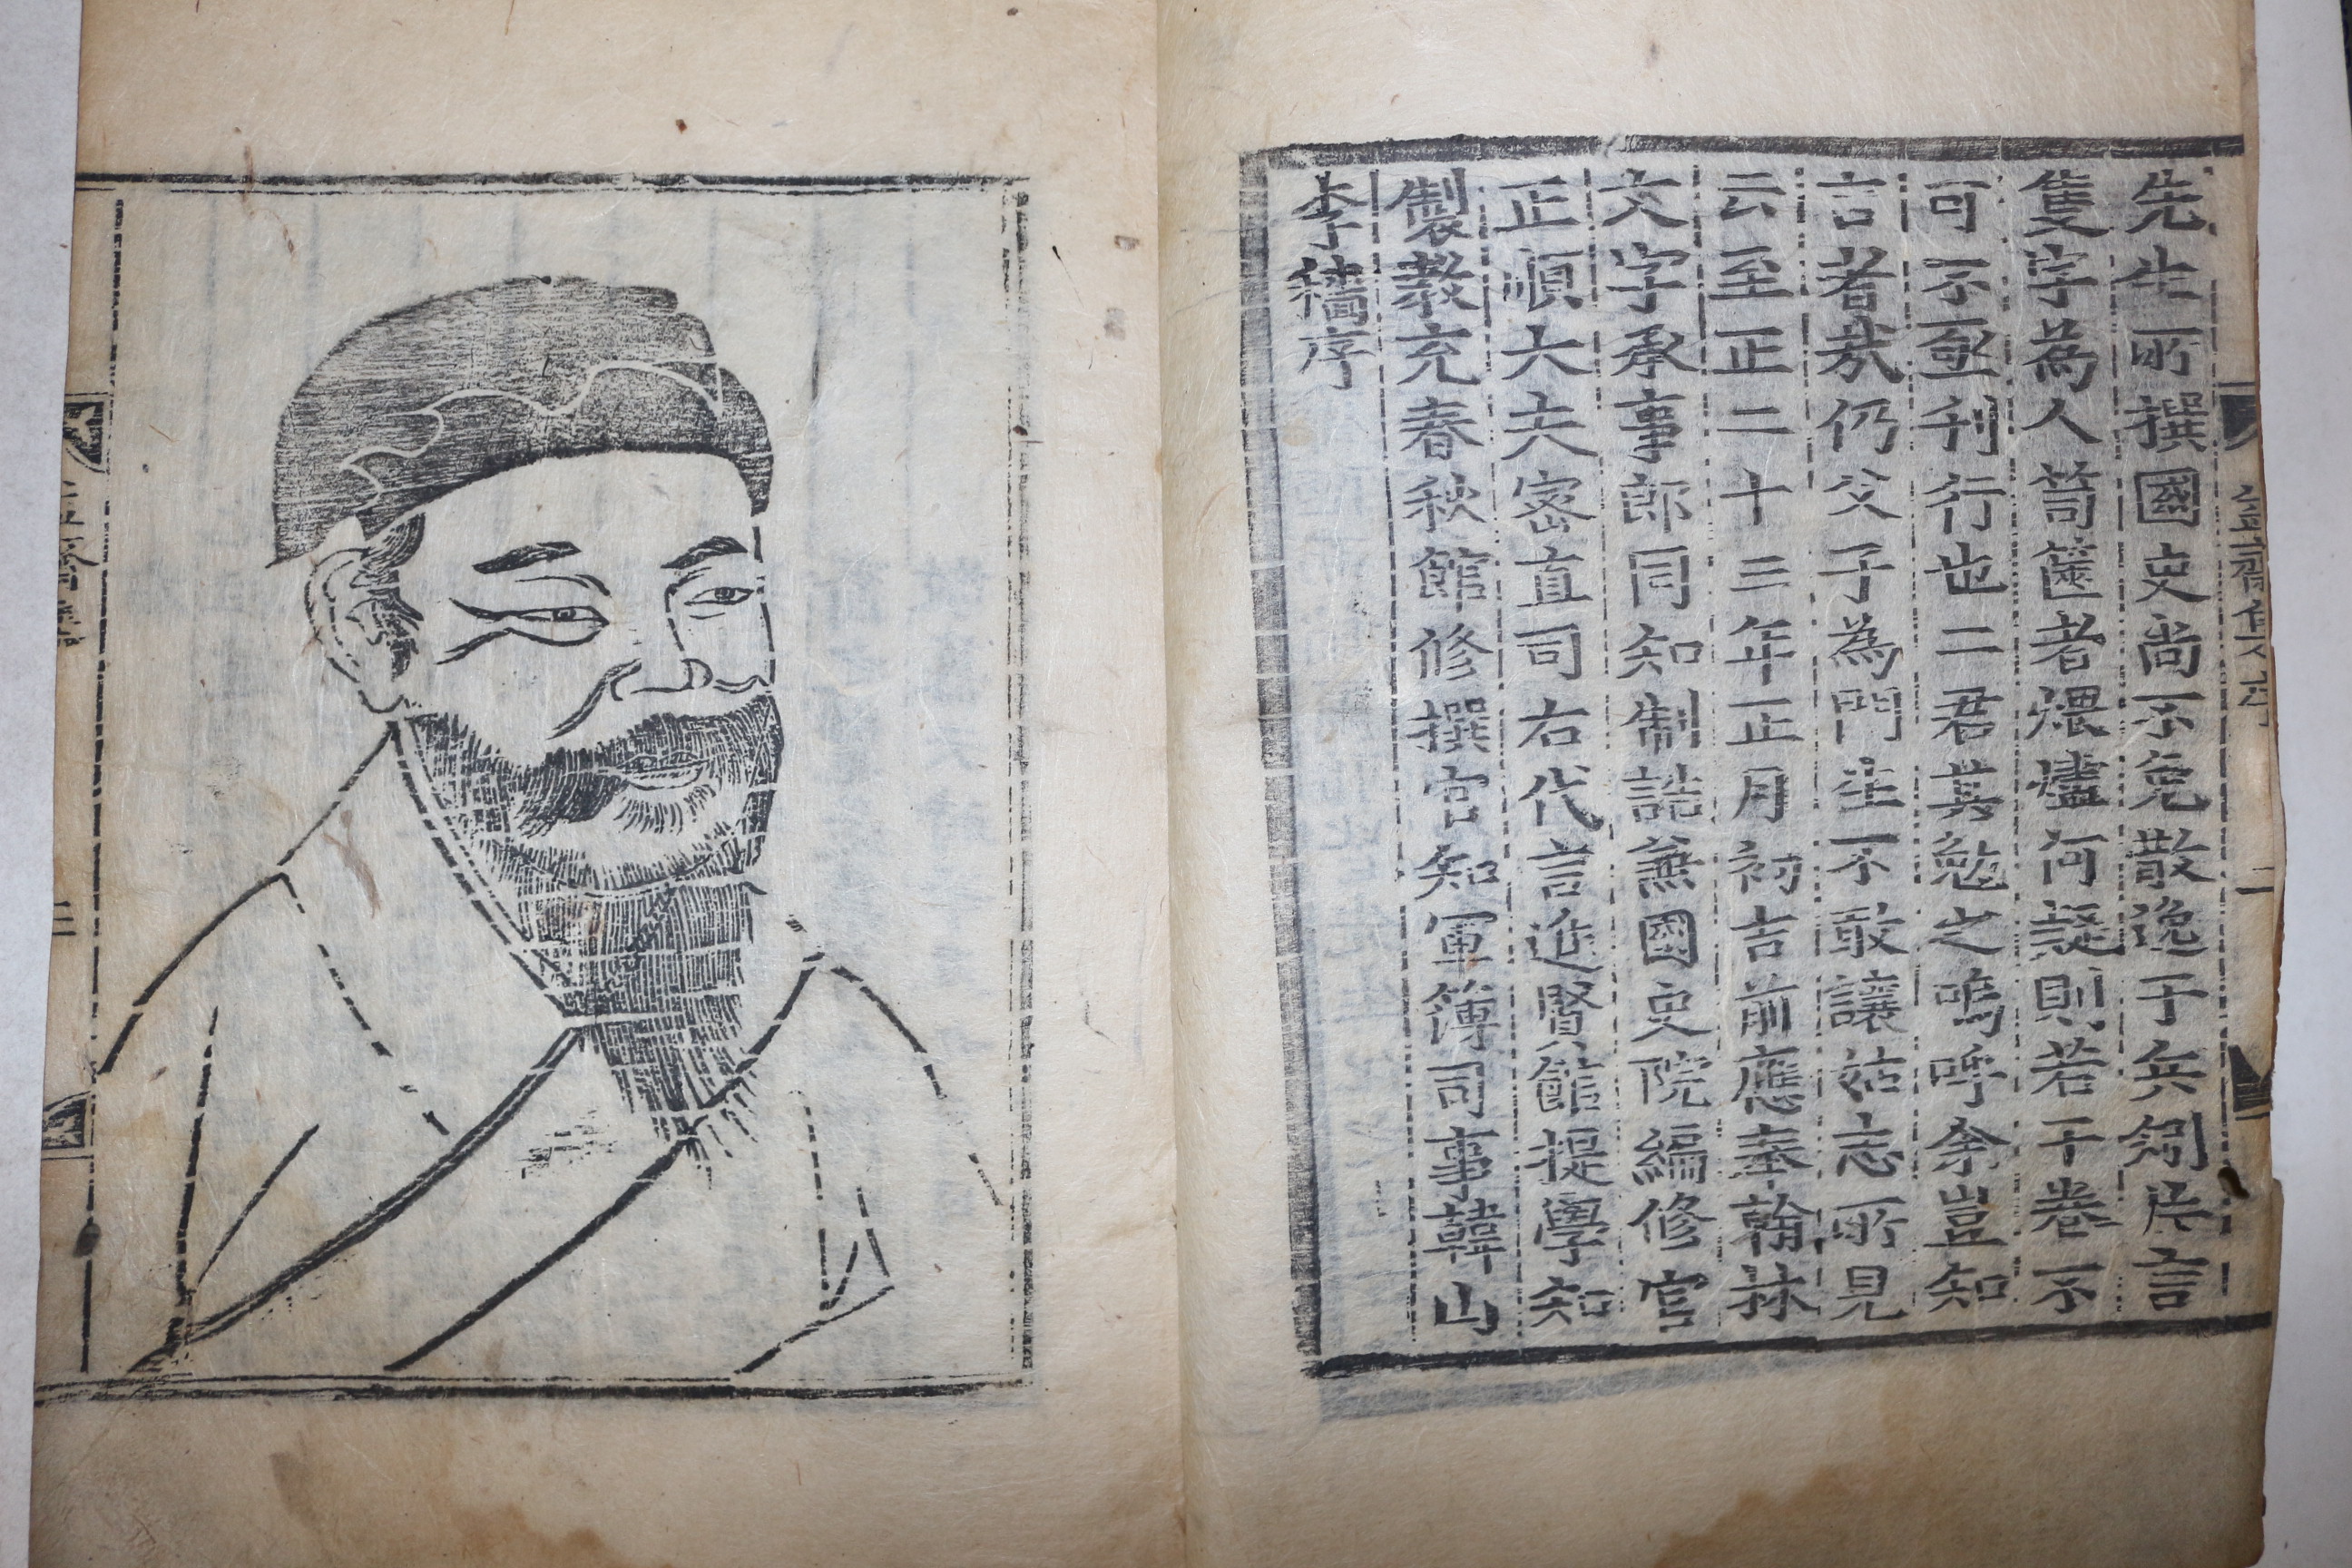 先生所撰國史尚不免散逸于兵矧片言
隻字爲人笥篋者煨燼何疑則若干卷不
可不亟刊行也二君其勉之嗚呼余豈知
言者㢤仍父子爲門生不敢讓姑志所見
云至正二十三年正月初吉前應奉翰林
文字承事郎同知制誥兼國史院編修官
正順大夫密直司右代言進賢館提學知
製敎充春秋館修撰官知軍簿司事韓山
李穡序